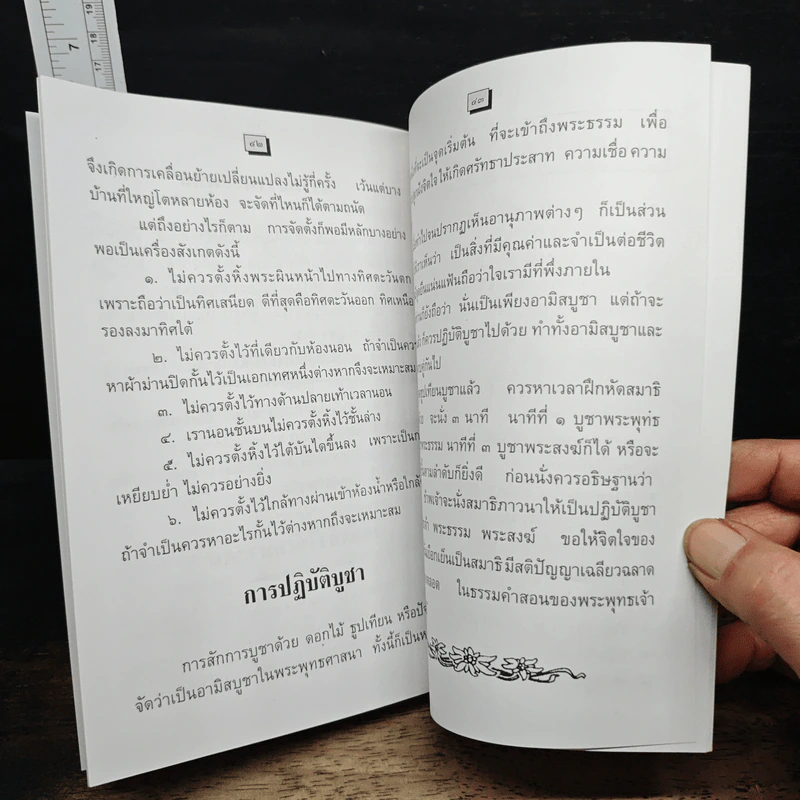 7
19
18
17
๔๒
จึงเกิดการเคลื่อนย้ายเปลี่ยนแปลงไม่รู้กี่ครั้ง เว้นแต่บาง
บ้านที่ใหญ่โตหลายห้อง จะจัดที่ไหนก็ได้ตามถนัด
แต่ถึงอย่างไรก็ตาม การจัดตั้งก็พอมีหลักบางอย่าง
พอเป็นเครื่องสังเกตดังนี้
๑. ไม่ควรตั้งหิ้งพระผินหน้าไปทางทิศตะวันตก
เพราะถือว่าเป็นทิศเสนียด ดีที่สุดคือทิศตะวันออก ทิศเหนือ
รองลงมาทิศใต้
๒. ไม่ควรตั้งไว้ที่เดียวกับห้องนอน ถ้าจำเป็นควร
หาผ้าม่านปิดกั้นไว้เป็นเอกเทศหนึ่งต่างหากจึงจะเหมาะสม
๓. ไม่ควรตั้งไว้ทางด้านปลายเท้าเวลานอน
๔. เรานอนชั้นบนไม่ควรตั้งหิ้งไว้ชั้นล่าง
๕. ไม่ควรตั้งหิ้งไว้ใต้บันไดขึ้นลง เพราะเป็น
เหยียบย่ำ ไม่ควรอย่างยิ่ง
๖. ไม่ควรตั้งไว้ใกล้ทางผ่านเข้าห้องน้ำหรือใกล้
ถ้าจำเป็นควรหาอะไรกั้นไว้ต่างหากถึงจะเหมาะสม
การปฏิบัติบูชา
การสักการบูชาด้วย ดอกไม้ ธูปเทียน หรือ
จัดว่าเป็นอามิสบูชาในพระพุทธศาสนา ทั้งนี้ก็เป็น
๔๓
จะเป็นจุดเริ่มต้น ที่จะเข้าถึงพระธรรม เพื่อ
จิตใจ ให้เกิดศรัทธาประสาท ความเชื่อ ความ
ไปจนปรากฏเห็นอานุภาพต่างๆ ก็เป็นส่วน
เห็นว่า เป็นสิ่งที่มีคุณค่าและจำเป็นต่อชีวิต
แน่นแฟ้นถือว่าใจเรามีที่พึ่งภายใน
ก็ยังถือว่า นั่นเป็นเพียงอามิสบูชา แต่ถ้าจะ
ก็ควรปฏิบัติบูชาไปด้วย ทำทั้งอามิสบูชาและ
คู่กันไป
ธูปเทียนบูชาแล้ว ควรหาเวลาฝึกหัดสมาธิ
จะนั่ง ๓ นาที นาทีที่ ๑ บูชาพระพุทธ
พระธรรม นาทีที่ ๓ บูชาพระสงฆ์ก็ได้ หรือจะ
ตามลำดับก็ยิ่งดี ก่อนนั่งควรอธิษฐานว่า
ข้าพเจ้าจะนั่งสมาธิภาวนาให้เป็นปฏิบัติบูชา
พระธรรม พระสงฆ์ ขอให้จิตใจของ
เยือกเย็นเป็นสมาธิ มีสติปัญญาเฉลียวฉลาด
ในธรรมคำสอนของพระพุทธเจ้า